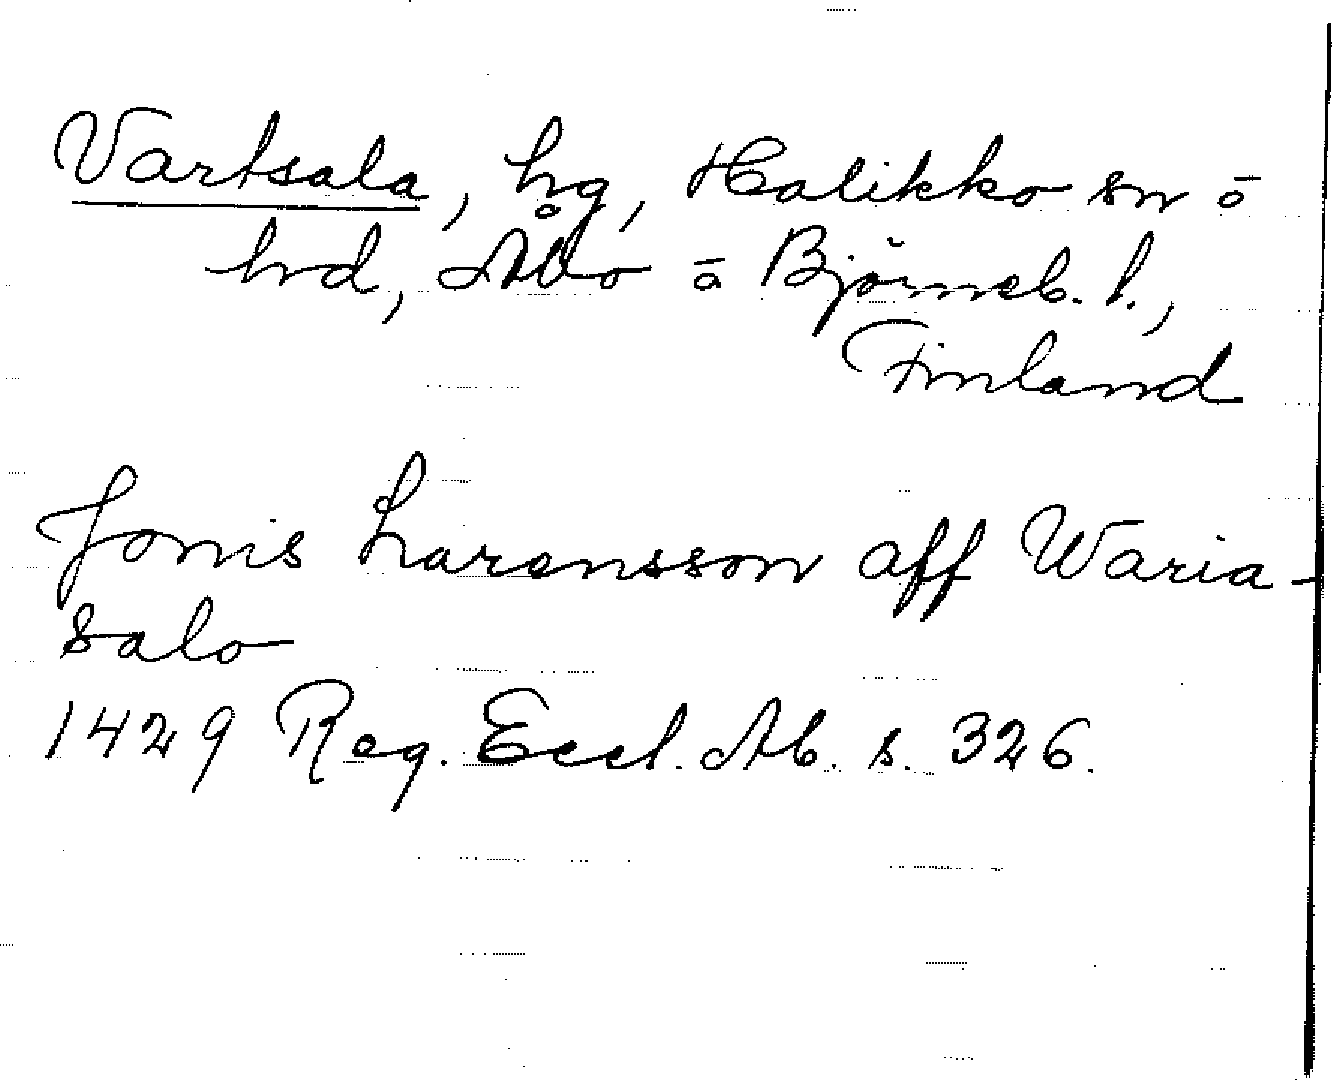 Vartsala, hg, Halikko sn o
hd, Åbo o Björneb. l.,
Finland
Jönis Larensson aff Waria-
salo
1429 Reg. Eccl. Ab. s. 326.